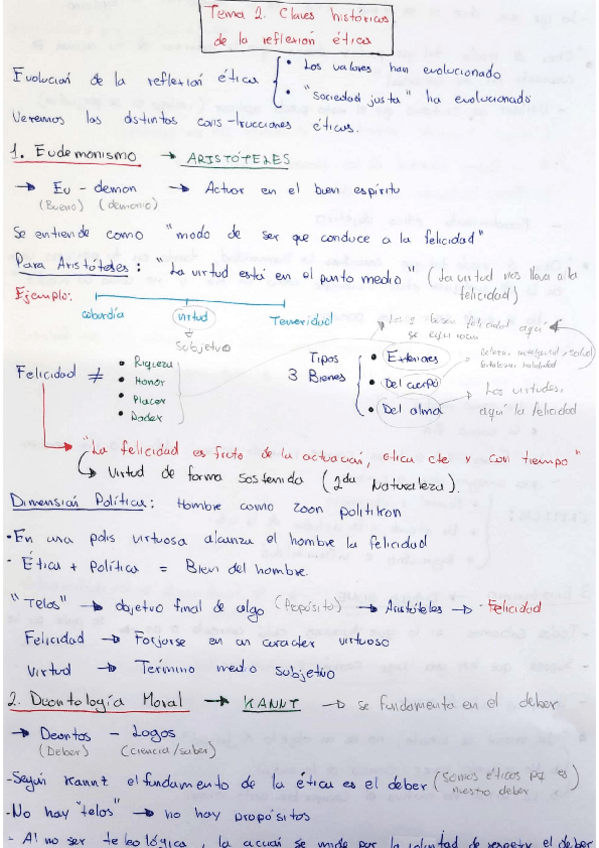 Tema 2. Claves históricas
de la reflexión ética
Evolución de la reflexión ética
• Los valores han evolucionado
• "Sociedad justa" ha evolucionado
Veremos las distintas cons-trucciones éticas.
1. Eudemonismo → ARISTÓTELES
→ Eu - demon → Actuar en el buen espíritu
(Bueno) (demonio)
Se entiende como "modo de ser que conduce a la felicidad"
Para Aristóteles: "La virtud está en el punto medio" (La virtud nos lleva a la
felicidad)
Ejemplo:
cobardía virtud Temeridad
Subjetivo
Felicidad ≠
• Riqueza
• Honor
• Placer
• Poder
Tipos
3 Bienes
• Exteriores
• Del cuerpo
• Del alma
felicidad aquí
se equivocan
Belleza, integridad, salud
fortaleza, habilidad
Las virtudes,
aquí la felicidad
"La felicidad es fruto de la actuación, ética cte y con tiempo"
↳ Virtud de forma sostenida (2da Naturaleza).
Dimensión Política: Hombre como zoon politikon
• En una polis virtuosa alcanza el hombre la felicidad
• Ética + Política = Bien del hombre.
"Telos" → objetivo final de algo (Propósito) → Aristóteles → Felicidad
Felicidad → Forjarse en un caracter virtuoso
Virtud → Termino medio subjetivo
2. Deontología Moral → KANNT → se fundamenta en el deber
→ Deontos - Logos
(Deber) (ciencia/saber)
-Según Kannt el fundamento de la ética es el deber (Somos éticos pq es
nuestro deber
-No hay "telos" → no hay propósitos
- Al no ser teleológica, la acción se mide por la voluntad de respetar el deber